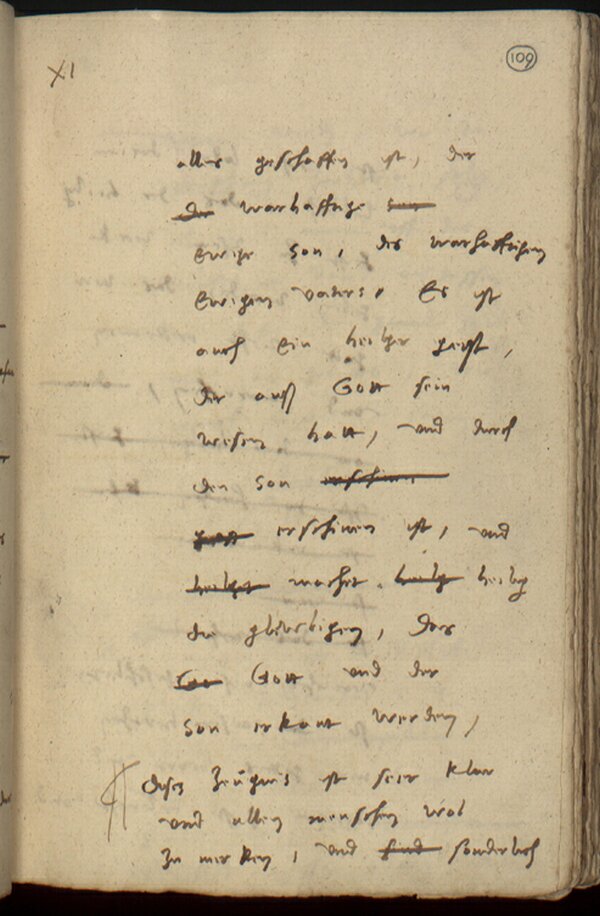 XI
109
alles geschaffen ist, der
der warhafftige son
ewige son, des warhafftigen
ewigen vaters, Es ist
auch ein heiliger geist,
der auß Gott sein
wesen hatt, und durch
den son erschinen
erschinen ist, und
heiliget machet heilig heilig
die gleubigen, das
Gott und der
son erkant werden,
dises Zeugnis ist seer klar
und allen menschen wol
zu merken, und sind sonderlich